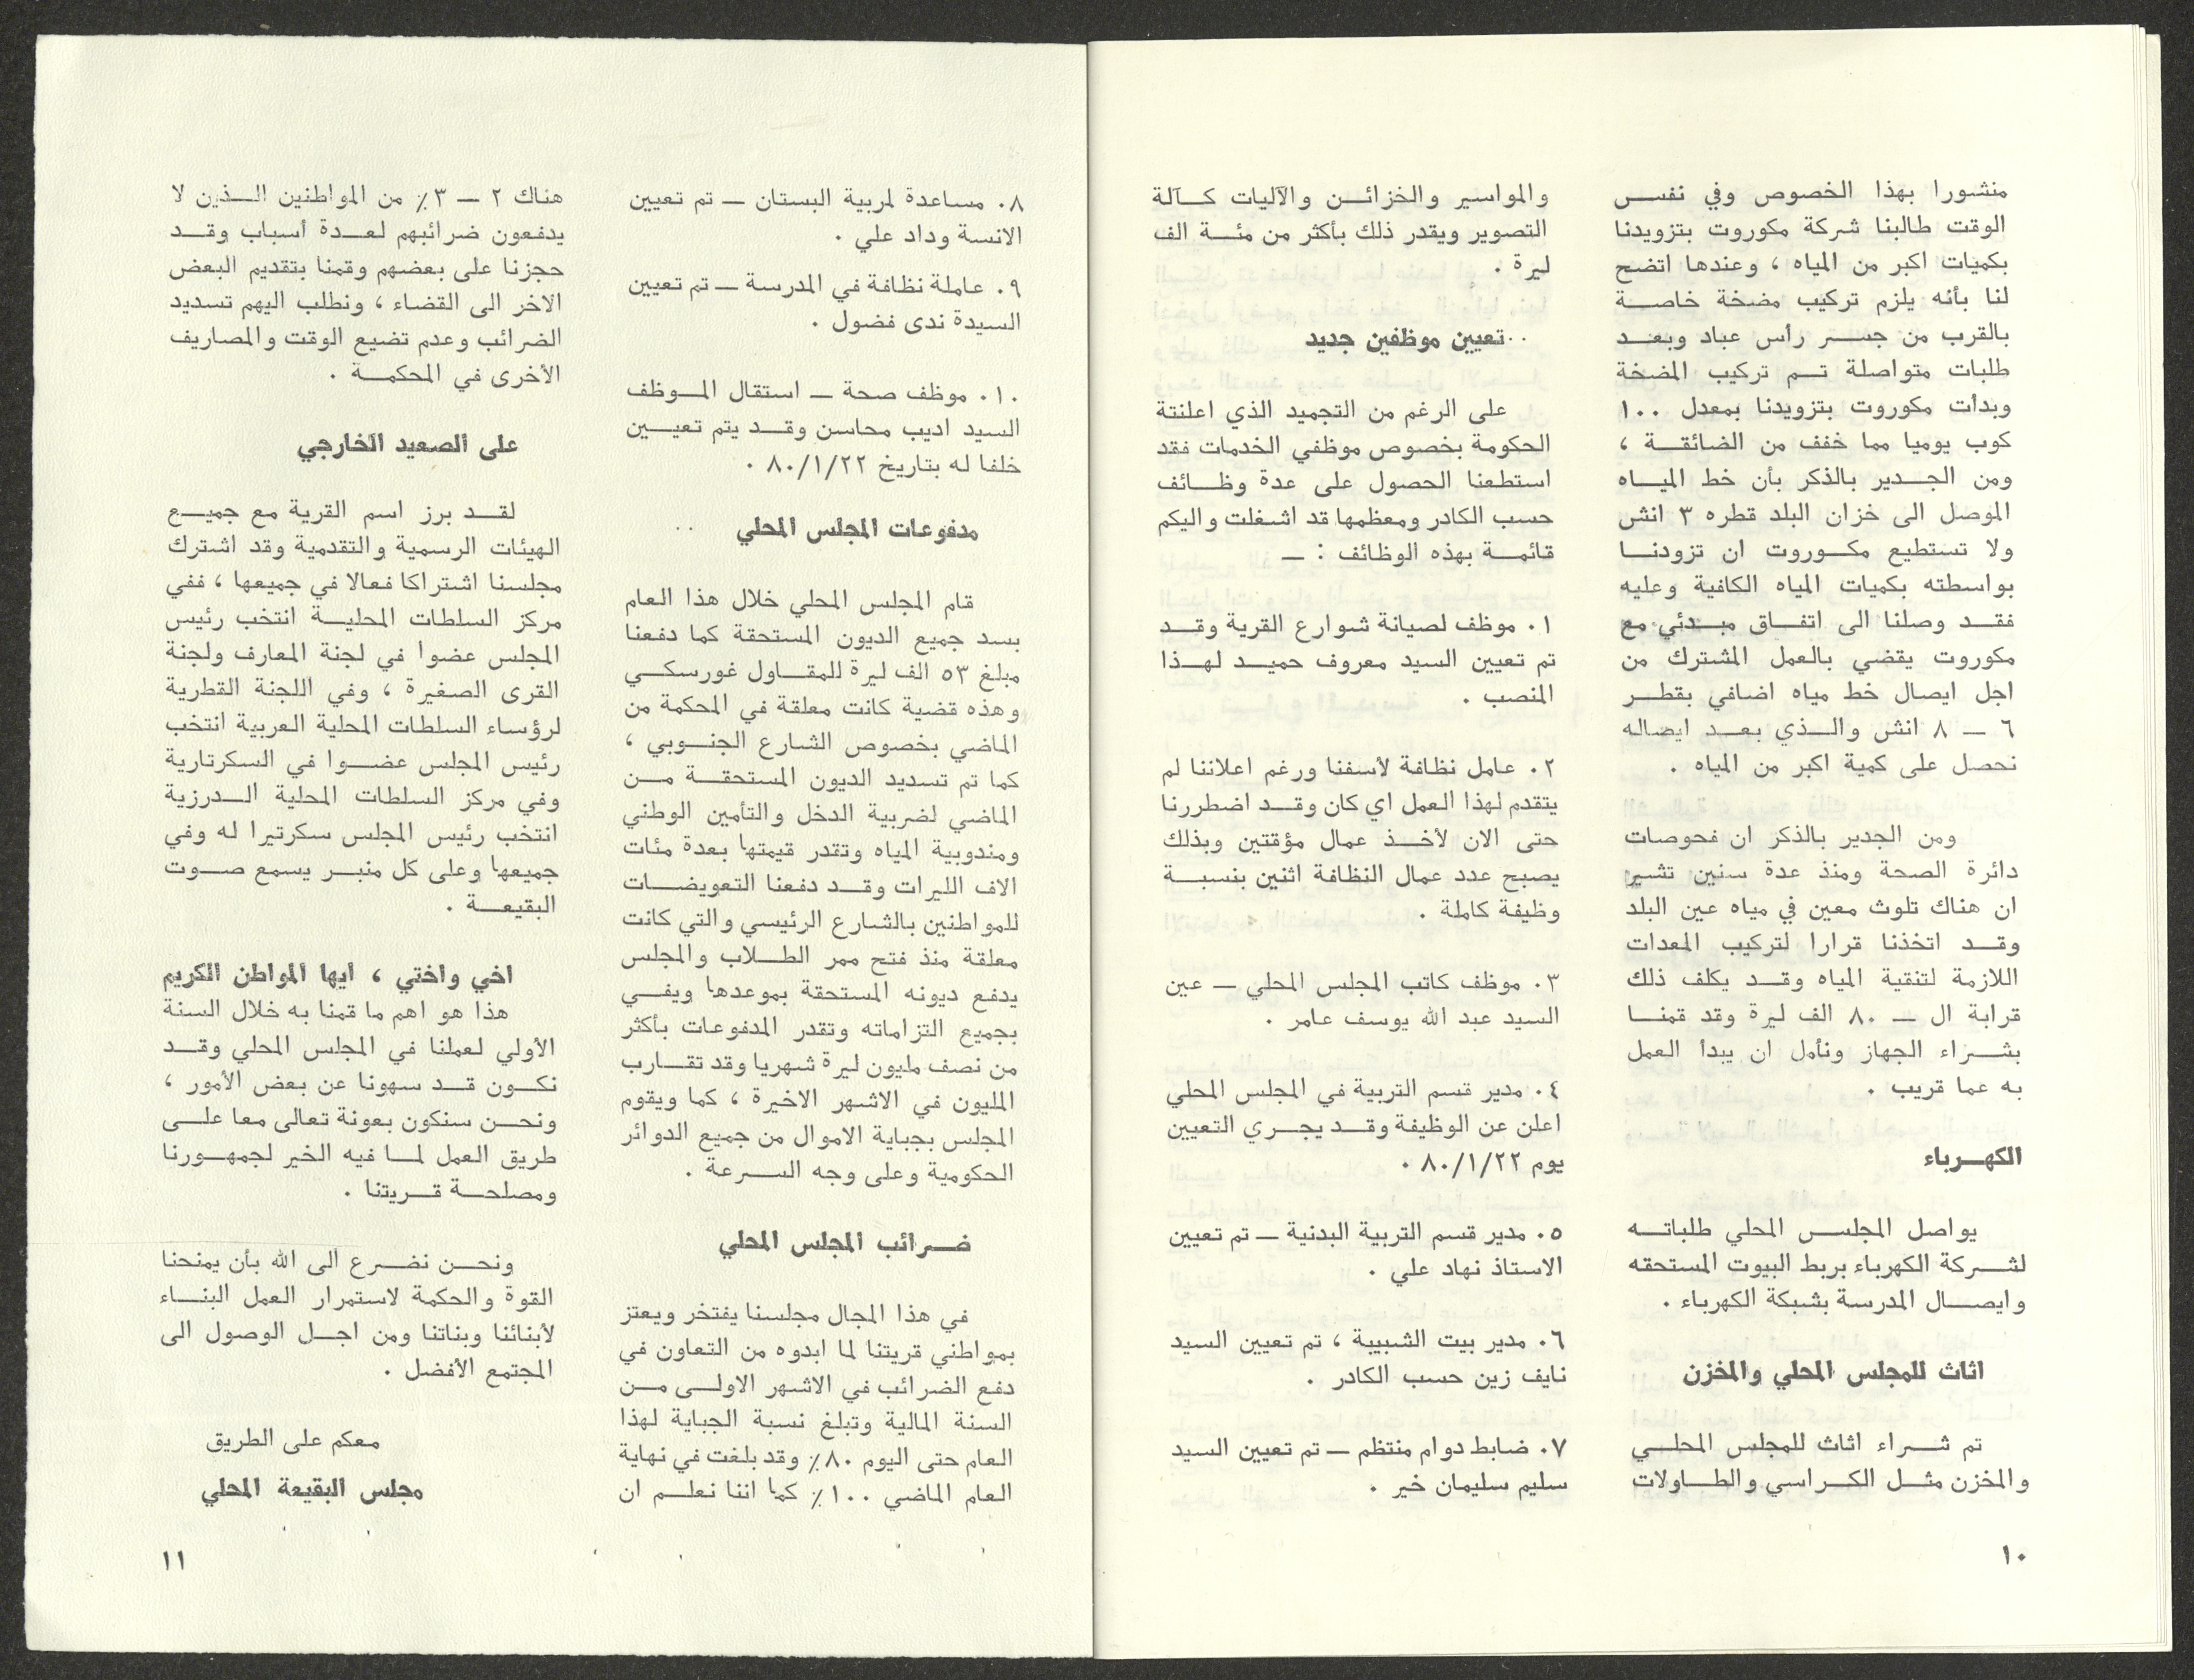 منشورا بهذا الخصوص وفي نفس
الوقت طالبنا شركة مكوروت بتزويدنا
بكميات اكبر من المياه ، وعندها اتضح
لنا بأنه يلزم تركيب مضخة خاصة
بالقرب من جسر رأس عباد وبعد
طلبات متواصلة تم تركيب المضخة
وبدأت مكوروت بتزويدنا بمعدل ١٠٠
كوب يوميا مما خفف من الضائقة ،
ومن الجدير بالذكر بأن خط المياه
الموصل الى خزان البلد قطره ٣ انش
ولا تستطيع مكوروت ان تزودنا
بواسطته بكميات المياه الكافية وعليه
فقد وصلنا الى اتفاق مبدئي مع
مكوروت يقضي بالعمل المشترك من
اجل ايصال خط مياه اضافي بقطر
٦ ــ ٨ انش والذي بعد ايصاله
نحصل على كمية اكبر من المياه .
ومن الجدير بالذكر ان فحوصات
دائرة الصحة ومنذ عدة سنين تشير
ان هناك تلوث معين في مياه عين البلد
وقد اتخذنا قرارا لتركيب المعدات
اللازمة لتنقية المياه وقد يكلف ذلك
قرابة ال ــ ٨٠ الف ليرة وقد قمنا
بشراء الجهاز ونأمل ان يبدأ العمل
به عما قريب .
الكهرباء
يواصل المجلس المحلي طلباته
لشركة الكهرباء بربط البيوت المستحقه
وايصال المدرسة بشبكة الكهرباء .
اثاث للمجلس المحلي والمخزن
تم شراء اثاث للمجلس المحلي
والمخزن مثل الكراسي والطاولات
والمواسير والخزائن والآليات كآلة
التصوير ويقدر ذلك بأكثر من مئة الف
ليرة .
تعيين موظفين جديد
على الرغم من التجميد الذي اعلنتة
الحكومة بخصوص موظفي الخدمات فقد
استطعنا الحصول على عدة وظائف
حسب الكادر ومعظمها قد اشغلت واليكم
قائمة بهذه الوظائف : ــ
٠١ موظف لصيانة شوارع القرية وقد
تم تعيين السيد معروف حميد لهذا
المنصب .
٠٢ عامل نظافة لأسفنا ورغم اعلاننا لم
يتقدم لهذا العمل اي كان وقد اضطررنا
حتى الان لأخذ عمال مؤقتين وبذلك
يصبح عدد عمال النظافة اثنين بنسبة
وظيفة كاملة .
٠٣ موظف كاتب المجلس المحلي ــ عين
السيد عبد الله يوسف عامر .
٠٤ مدير قسم التربية في المجلس المحلي
اعلن عن الوظيفة وقد يجري التعيين
يوم ٨٠/١/٢٢ .
٠٥ مدير قسم التربية البدنية ــ تم تعيين
الاستاذ نهاد علي .
٠٦ مدير بيت الشبيبة ، تم تعيين السيد
نايف زين حسب الكادر .
٠٧ ضابط دوام منتظم ــ تم تعيين السيد
سليم سليمان خير .
١٠
٠٨ مساعدة لمربية البستان ــ تم تعيين
الانسة وداد علي .
٠٩ عاملة نظافة في المدرسة ــ تم تعيين
السيدة ندى فضول .
٠١٠ موظف صحة ــ استقال الموظف
السيد اديب محاسن وقد يتم تعيين
خلفا له بتاريخ ٨٠/١/٢٢ .
مدفوعات المجلس المحلي
قام المجلس المحلي خلال هذا العام
بسد جميع الديون المستحقة كما دفعنا
مبلغ ٥٣ الف ليرة للمقاول غورسكي
وهذه قضية كانت معلقة في المحكمة من
الماضي بخصوص الشارع الجنوبي ،
كما تم تسديد الديون المستحقة من
الماضي لضربية الدخل والتأمين الوطني
ومندوبية المياه وتقدر قيمتها بعدة مئات
الاف الليرات وقد دفعنا التعويضات
للمواطنين بالشارع الرئيسي والتي كانت
معلقة منذ فتح ممر الطلاب والمجلس
يدفع ديونه المستحقة بموعدها ويفي
بجميع التزاماته وتقدر المدفوعات بأكثر
من نصف مليون ليرة شهريا وقد تقارب
المليون في الاشهر الاخيرة ، كما ويقوم
المجلس بجباية الاموال من جميع الدوائر
الحكومية وعلى وجه السرعة .
ضرائب المجلس المحلي
في هذا المجال مجلسنا يفتخر ويعتز
بمواطني قريتنا لما ابدوه من التعاون في
دفع الضرائب في الاشهر الاولى من
السنة المالية وتبلغ نسبة الجباية لهذا
العام حتى اليوم ٨٠٪ وقد بلغت في نهاية
العام الماضي ١٠٠٪ كما اننا نعلم ان
هناك ٢ ــ ٣٪ من المواطنين الذين لا
يدفعون ضرائبهم لعدة أسباب وقد
حجزنا على بعضهم وقمنا بتقديم البعض
الاخر الى القضاء ، ونطلب اليهم تسديد
الضرائب وعدم تضيع الوقت والمصاريف
الأخرى في المحكمة .
على الصعيد الخارجي
لقد برز اسم القرية مع جميع
الهيئات الرسمية والتقدمية وقد اشترك
مجلسنا اشتراكا فعالا في جميعها ، ففي
مركز السلطات المحلية انتخب رئيس
المجلس عضوا في لجنة المعارف ولجنة
القرى الصغيرة ، وفي اللجنة القطرية
لرؤساء السلطات المحلية العربية انتخب
رئيس المجلس عضوا في السكرتارية
وفي مركز السلطات المحلية الدرزية
انتخب رئيس المجلس سكرتيرا له وفي
جميعها وعلى كل منبر يسمع صوت
البقيعة .
اخي واختي ، ايها المواطن الكريم
هذا هو اهم ما قمنا به خلال السنة
الأولي لعملنا في المجلس المحلي وقد
نكون قد سهونا عن بعض الأمور ،
ونحن سنكون بعونة تعالى معا على
طريق العمل لما فيه الخير لجمهورنا
ومصلحة قريتنا .
ونحن نضرع الى الله بأن يمنحنا
القوة والحكمة لاستمرار العمل البناء
لأبنائنا وبناتنا ومن اجل الوصول الى
المجتمع الأفضل .
معكم على الطريق
مجلس البقيعة المحلي
١١